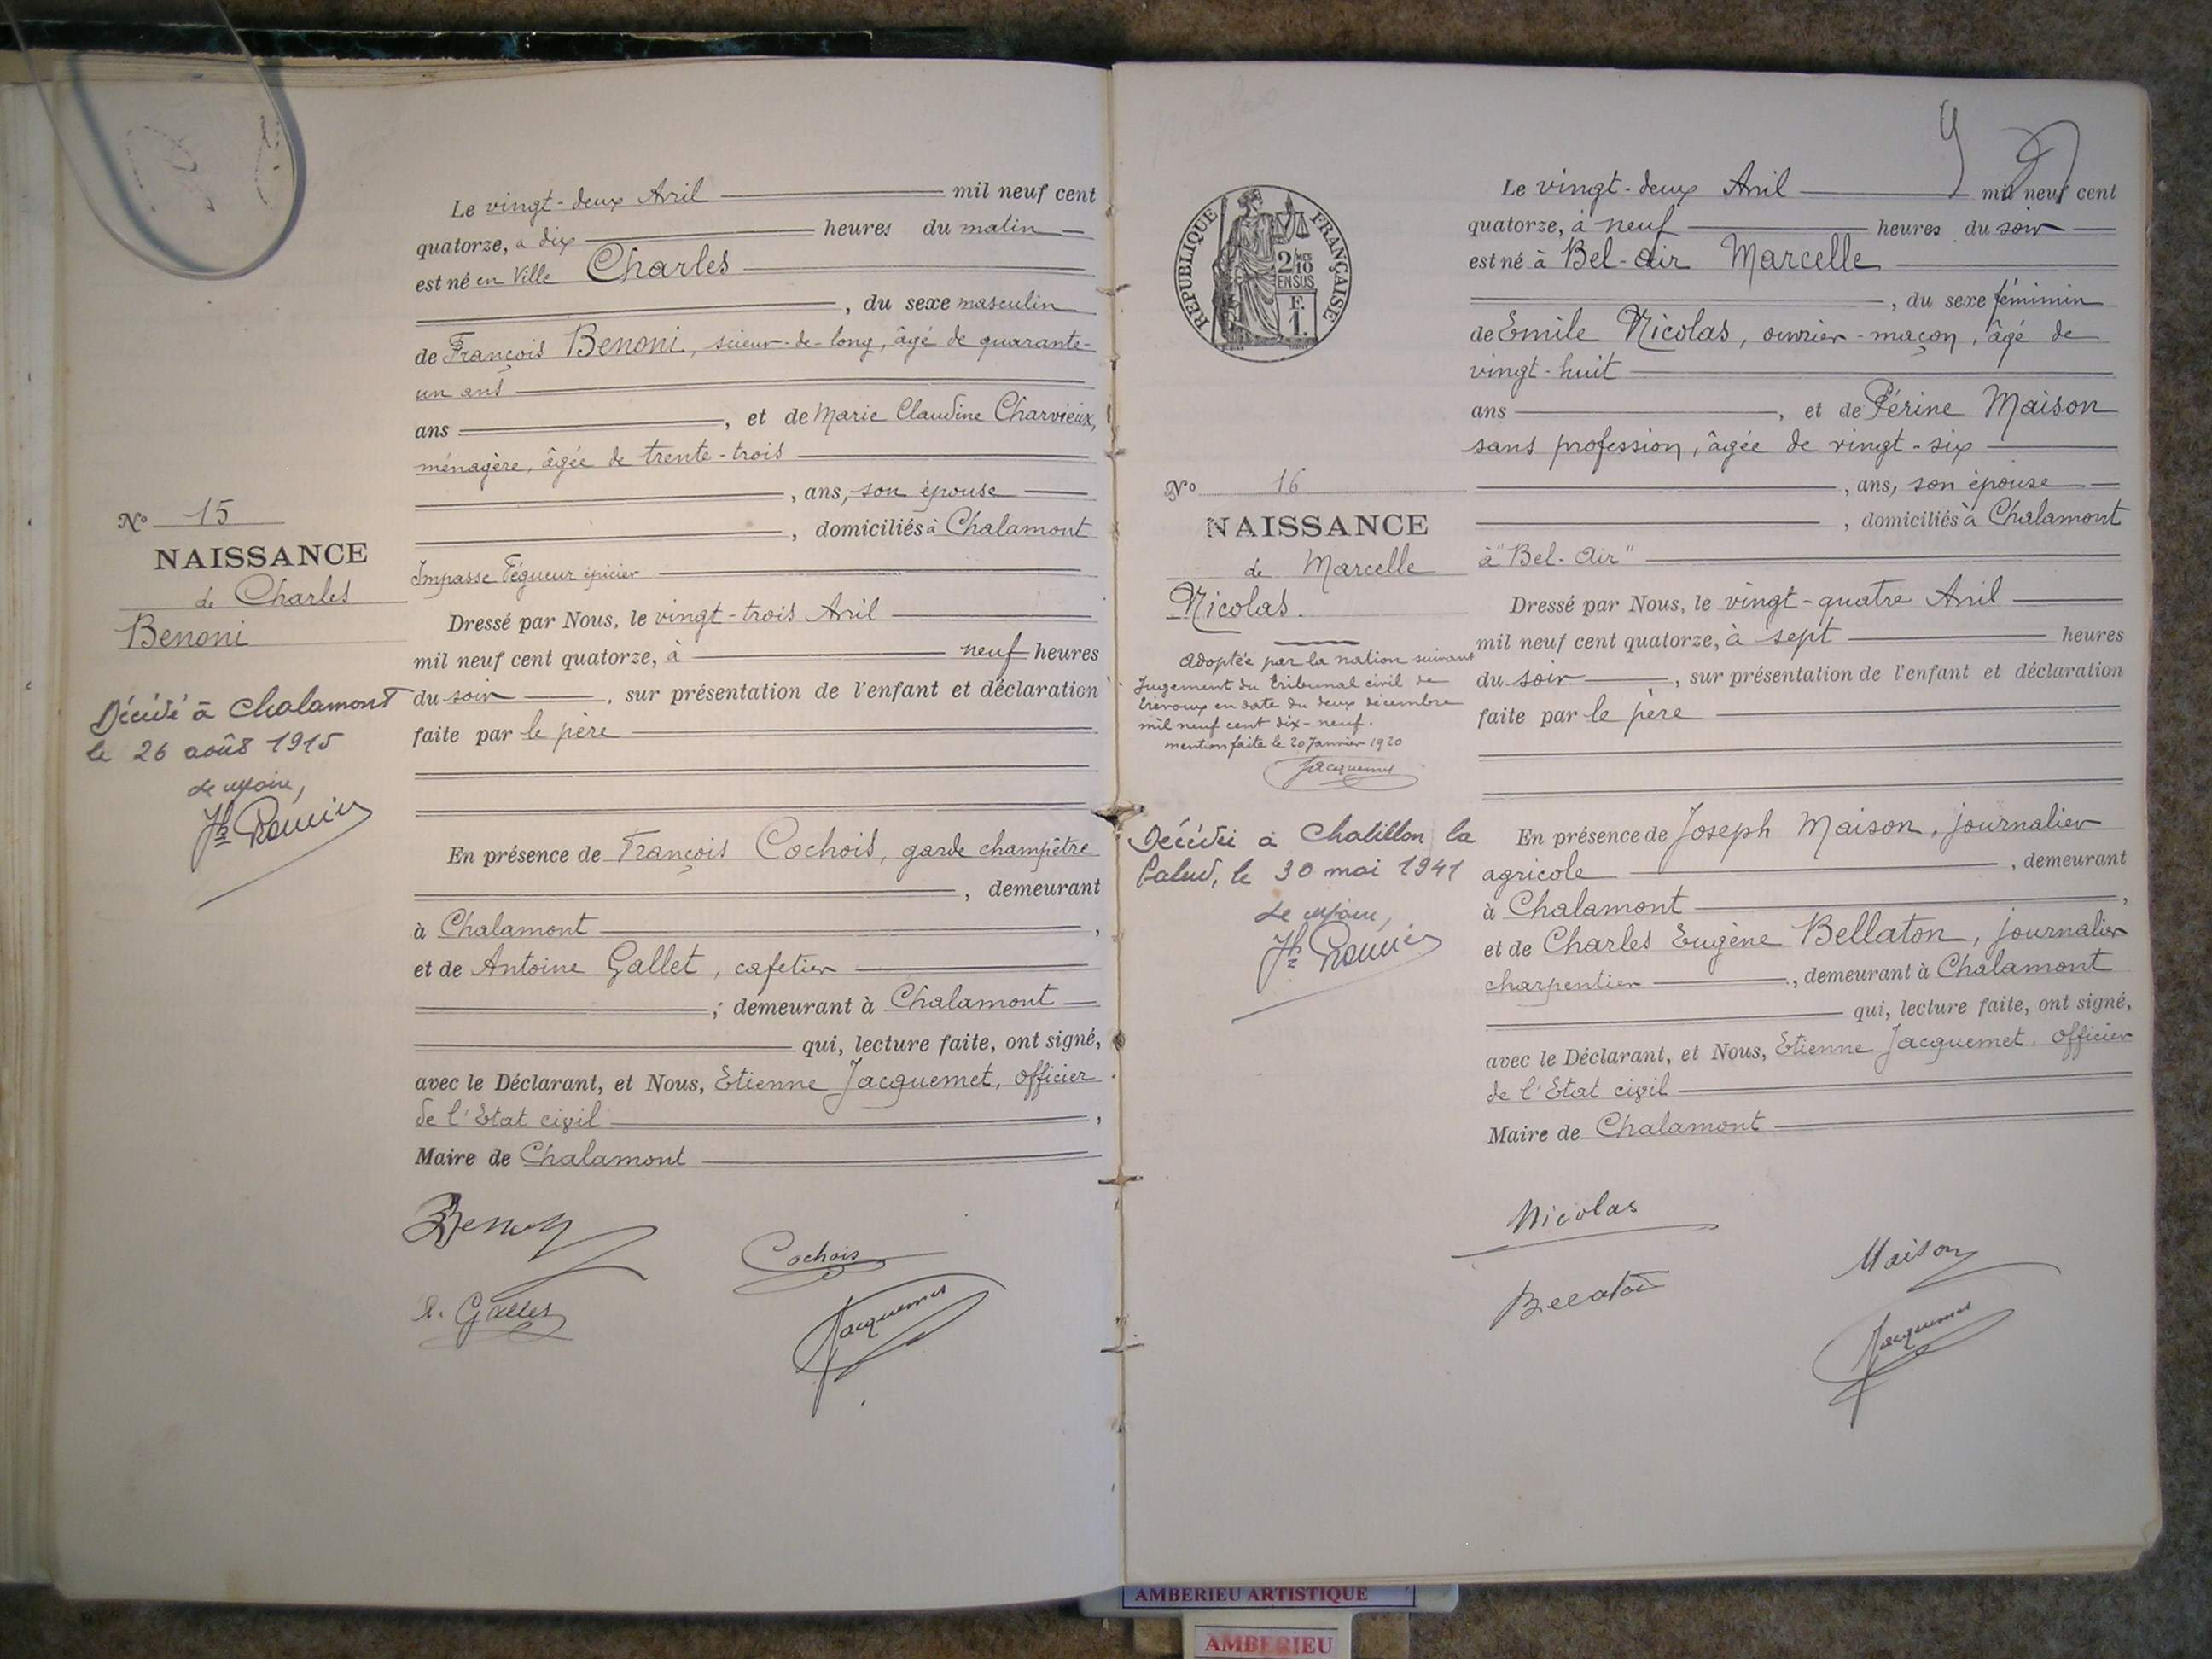 Le vingt-deux Avril mil neuf cent
quatorze, à dix heures du matin
est né en Ville Charles
, du sexe masculin
de François Benoni, scieur-de-long, âgé de quarante-
un ans
ans , et de Marie Claudine Charvieux,
ménagère, âgée de trente-trois
, ans, son épouse
, domiciliés à Chalamont
Impasse épicier
Dressé par Nous, le vingt-trois Avril
mil neuf cent quatorze, à neuf heures
du soir , sur présentation de l'enfant et déclaration
faite par le père
En présence de François Cochois, garde champêtre
, demeurant
à Chalamont ,
et de Antoine Gallet, cafetier
; demeurant à Chalamont
qui, lecture faite, ont signé,
avec le Déclarant, et Nous, Etienne Jacquemet, officier
de l'Etat civil ,
Maire de Chalamont
Cochois
A. Gallet
Jacquemet
No 15
NAISSANCE
de Charles
Benoni
Décédé à Chalamont
le 26 août 1915
Le Maire,
RÉPUBLIQUE FRANÇAISE
2/10
EN SUS
F.
1.
No 16
NAISSANCE
de Marcelle
Nicolas.
Adoptée par la nation suivant
Jugement du tribunal civil de
Trévoux en date du deux décembre
mil neuf cent dix-neuf.
mention faite le 20 Janvier 1920
Jacquemet
Décédée à Chatillon la
Palud, le 30 mai 1941
Le Maire,
Le vingt-deux Avril mil neuf cent
quatorze, à neuf heures du soir
est né à Bel-Air Marcelle
, du sexe féminin
de Emile Nicolas, ouvrier-maçon, âgé de
vingt-huit
ans , et de Périne Maison
sans profession, âgée de vingt-six
, ans, son épouse
, domiciliés à Chalamont
à "Bel-Air"
Dressé par Nous, le vingt-quatre Avril
mil neuf cent quatorze, à sept heures
du soir , sur présentation de l'enfant et déclaration
faite par le père
En présence de Joseph Maison, journalier
agricole , demeurant
à Chalamont ,
et de Charles Eugène Bellaton, journalier
charpentier , demeurant à Chalamont
qui, lecture faite, ont signé,
avec le Déclarant, et Nous, Etienne Jacquemet, officier
de l'Etat civil
Maire de Chalamont
Nicolas
Maison
Bellaton
Jacquemet
AMBERIEU ARTISTIQUE
AMBERIEU